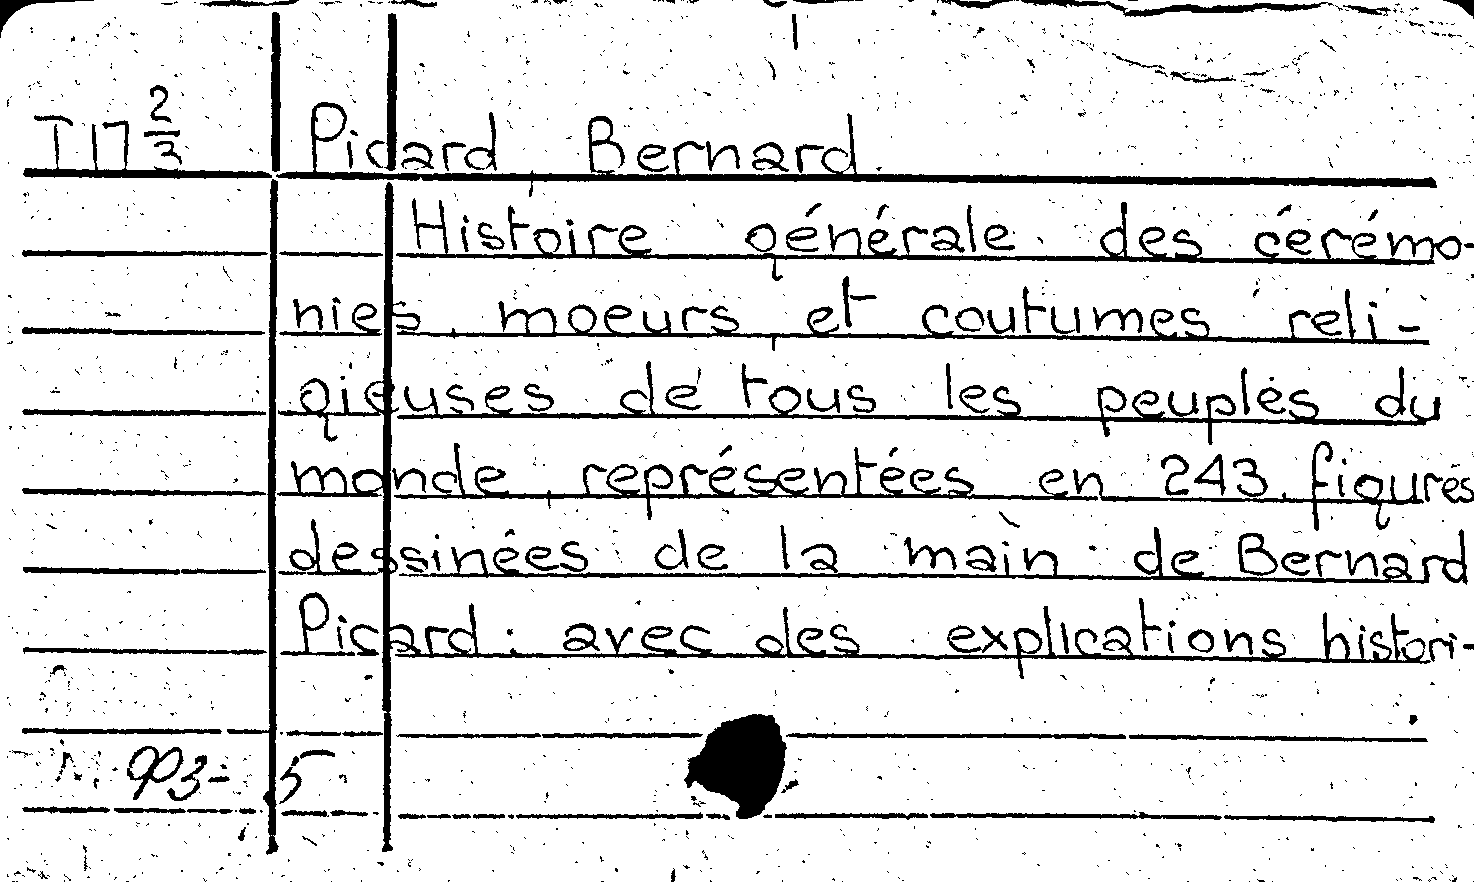 T 17 2/3 Picard Bernard.
Histoire générale des cérémo-
nies, moeurs et coutumes reli-
gieuses de tous les peuples du
monde, représentées en 243 figures
dessinées de la main de Bernard
Picard : avec des explications histori-